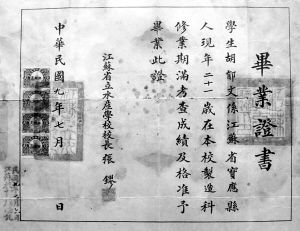 畢業證書
學生胡郁文係江蘇省寶應縣
人現年二十一歲在本校製造科
修業期滿考查成績及格准予
畢業此證
江蘇省立水產學校校長張鏐
中華民國九年七月 日